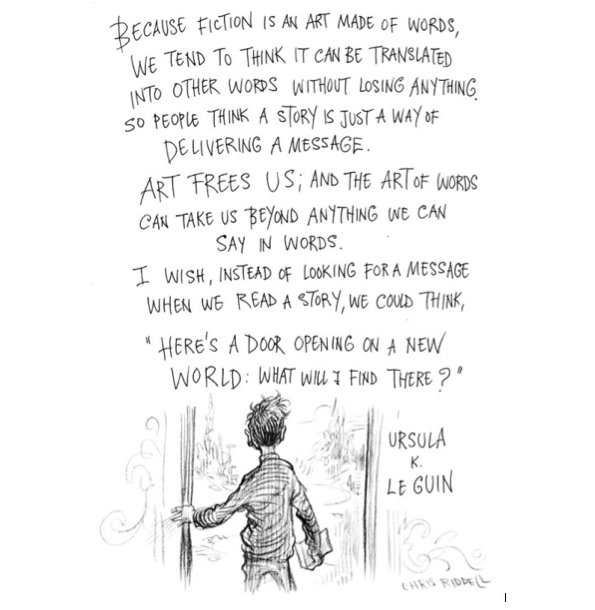 BECAUSE FICTION IS AN ART MADE OF WORDS,
WE TEND TO THINK IT CAN BE TRANSLATED
INTO OTHER WORDS WITHOUT LOSING ANYTHING.
SO PEOPLE THINK A STORY IS JUST A WAY OF
DELIVERING A MESSAGE.
ART FREES US; AND THE ART OF WORDS
CAN TAKE US BEYOND ANYTHING WE CAN
SAY IN WORDS.
I WISH, INSTEAD OF LOOKING FOR A MESSAGE
WHEN WE READ A STORY, WE COULD THINK,
"HERE'S A DOOR OPENING ON A NEW
WORLD: WHAT WILL I FIND THERE?"
URSULA
K.
LE GUIN
CHRIS RIDDELL